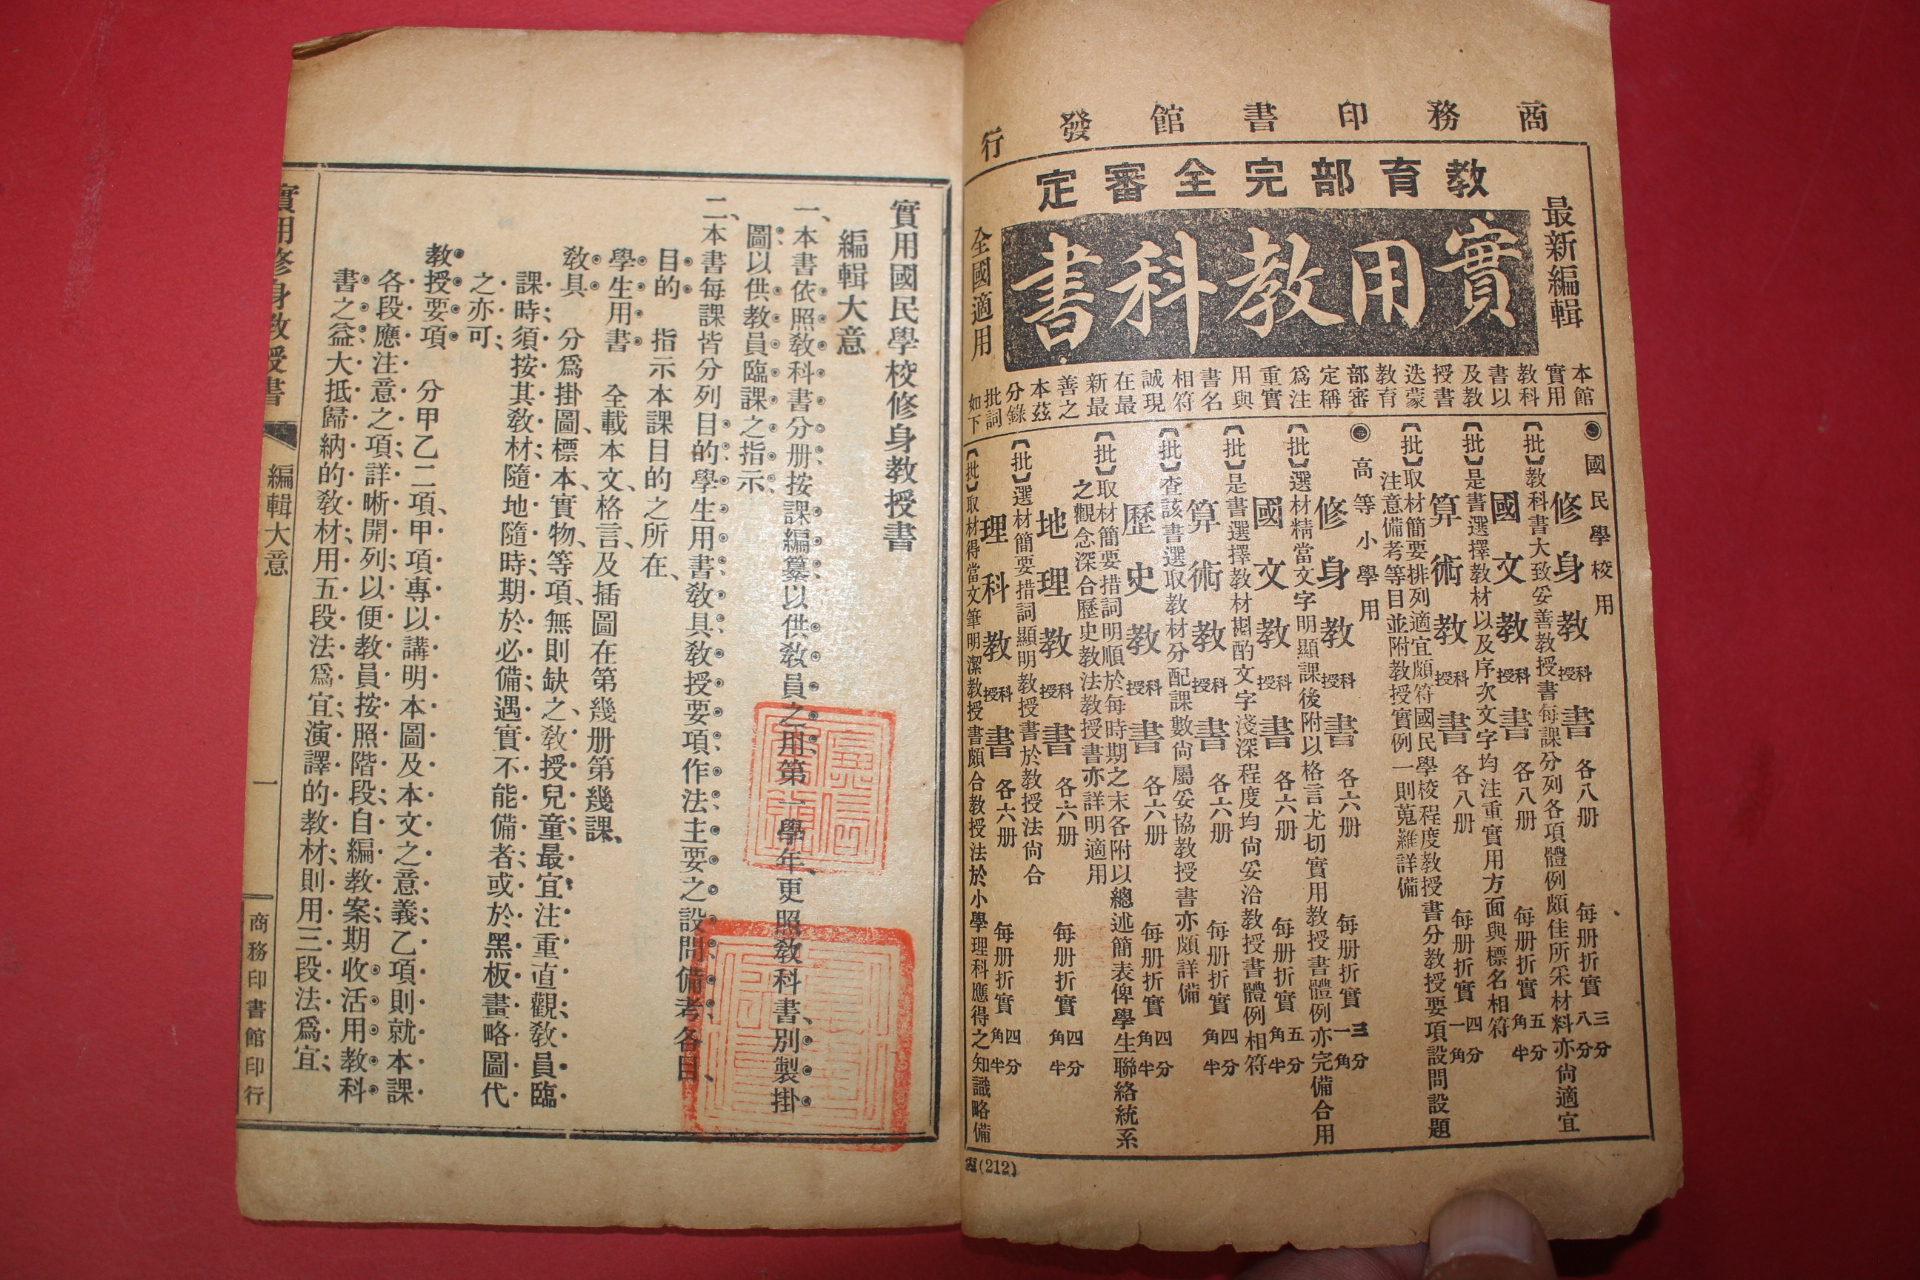 商務印書館發行
教育部完全審定
最新編輯
實用教科書
全國適用
本館
實用
教科
書以
及教
授書
迭蒙
教育
部審
定稱
爲注
重實
用與
書名
相符
誠現
在最
新最
善之
本茲
分錄
批詞
如下
◉國民學校用
修身教科授書 各八册 每册折實三分八分
【批】教科書大致妥善教授書每課分列各項體例頗佳所采材料亦尙適宜
國文教科授書 各八册 每册折實五分角半
【批】是書選擇教材以及序次文字均注重實用方面與標名相符
算術教科授書 各八册 每册折實四分一角
【批】取材簡要排列適宜頗符國民學校程度教授書分教授要項設問設題
注意備考等目並附教授實例一則蒐羅詳備
◉高等小學用
修身教科授書 各六册 每册折實三分一角
【批】選材精當文字明顯課後附以格言尤切實用教授書體例亦完備合用
國文教科授書 各六册 每册折實五分角半
【批】是書選擇教材斟酌文字淺深程度均尙妥洽教授書體例相符
算術教科授書 各六册 每册折實四分角半
【批】查該書選取教材分配課數尙屬妥協教授書亦頗詳備
歷史教科授書 各六册 每册折實四分角半
【批】取材簡要措詞明順於每時期之末各附以總述簡表俾學生聯絡統系
之觀念深合歷史教法教授書亦詳明適用
地理教科授書 各六册 每册折實四分角半
【批】選材簡要措詞顯明教授書於教授法尙合
理科教科授書 各六册 每册折實四分角半
【批】取材得當文筆明潔教授書頗合教授法於小學理科應得之知識略備
(212)
實用國民學校修身教授書
編輯大意
一、本書依照教科書分册按課編纂以供教員之用、第一學年、更照教科書、別製掛
圖以供教員臨課之指示、
二、本書每課皆分列目的學生用書教具教授要項作法主要之設問備考各目、
目的 指示本課目的之所在、
學生用書 全載本文、格言、及插圖在第幾册第幾課、
教具 分爲掛圖、標本、實物、等項、無則缺之、教授兒童最宜注重直觀、教員臨
課時、須按其教材、隨地隨時、期於必備、遇實不能備者、或於黑板畫略圖代
之亦可、
教授要項 分甲乙二項、甲項專以講明本圖及本文之意義、乙項則就本課
各段應注意之項、詳晰開列、以便教員按照階段、自編教案、期收活用教科
書之益、大抵歸納的教材、用五段法爲宜、演譯的教材、則用三段法爲宜、
實用修身教授書
編輯大意
一
商務印書館印行